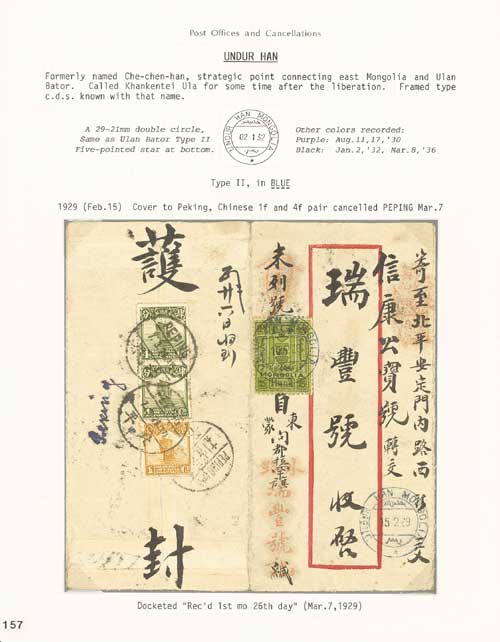 Post Offices and Cancellations
UNDUR HAN
Formerly named Che-chen-han, strategic point connecting east Mongolia and Ulan
Bator. Called Khankentei Ula for some time after the liberation. Framed type
c.d.s. known with that name.
A 29-21mm double circle,
Same as Ulan Bator Type II
Five-pointed star at bottom.
UNDUR HAN MONGOLIA
02·1·32
Other colors recorded:
Purple: Aug.11,17,'30
Black: Jan.2,'32, Mar.8,'36
Type II, in BLUE
1929 (Feb.15) Cover to Peking, Chinese 1f and 4f pair cancelled PEPING Mar.7
寄至北平安定門內路西
信康公寶號轉交
瑞豐號收啓
未列號
MONGOLIA
自東
瑞豐號
緘
護
封
PEPING
Peping
UNDUR HAN MONGOLIA
15·2·29
Docketed "Rec'd 1st mo 26th day" (Mar.7,1929)
157